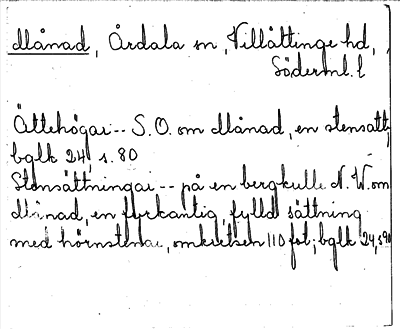 Månad, Årdala sn, Villåttinge hd,
Söderml. l
Ättehögar -- S.O. om Månad, en stensatt;
bglk 24, s. 80
Stensättningar -- på en bergkulle N.W. om
Månad, en fyrkantig, fylld sättning
med hörnstenar, omkretsen 110 fot; bglk 24, s 90